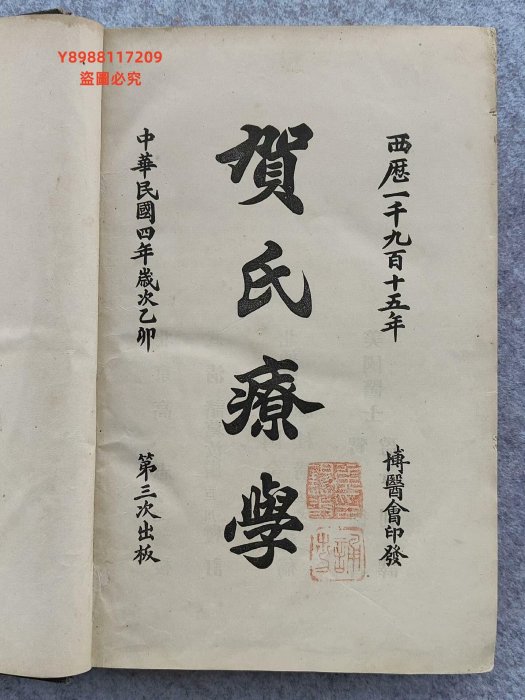 Y8988117209
盜圖必究
西歷一千九百十五年
博醫會印發
賀氏療學
中華民國四年歲次乙卯
第三次出板